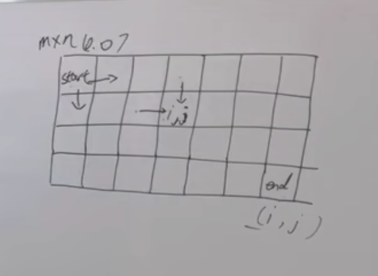 m×n 6.07
start
i,j
end
(i,j)